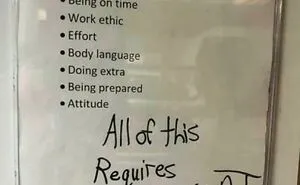 • Being on time
• Work ethic
• Effort
• Body language
• Doing extra
• Being prepared
• Attitude
All of this
Requires